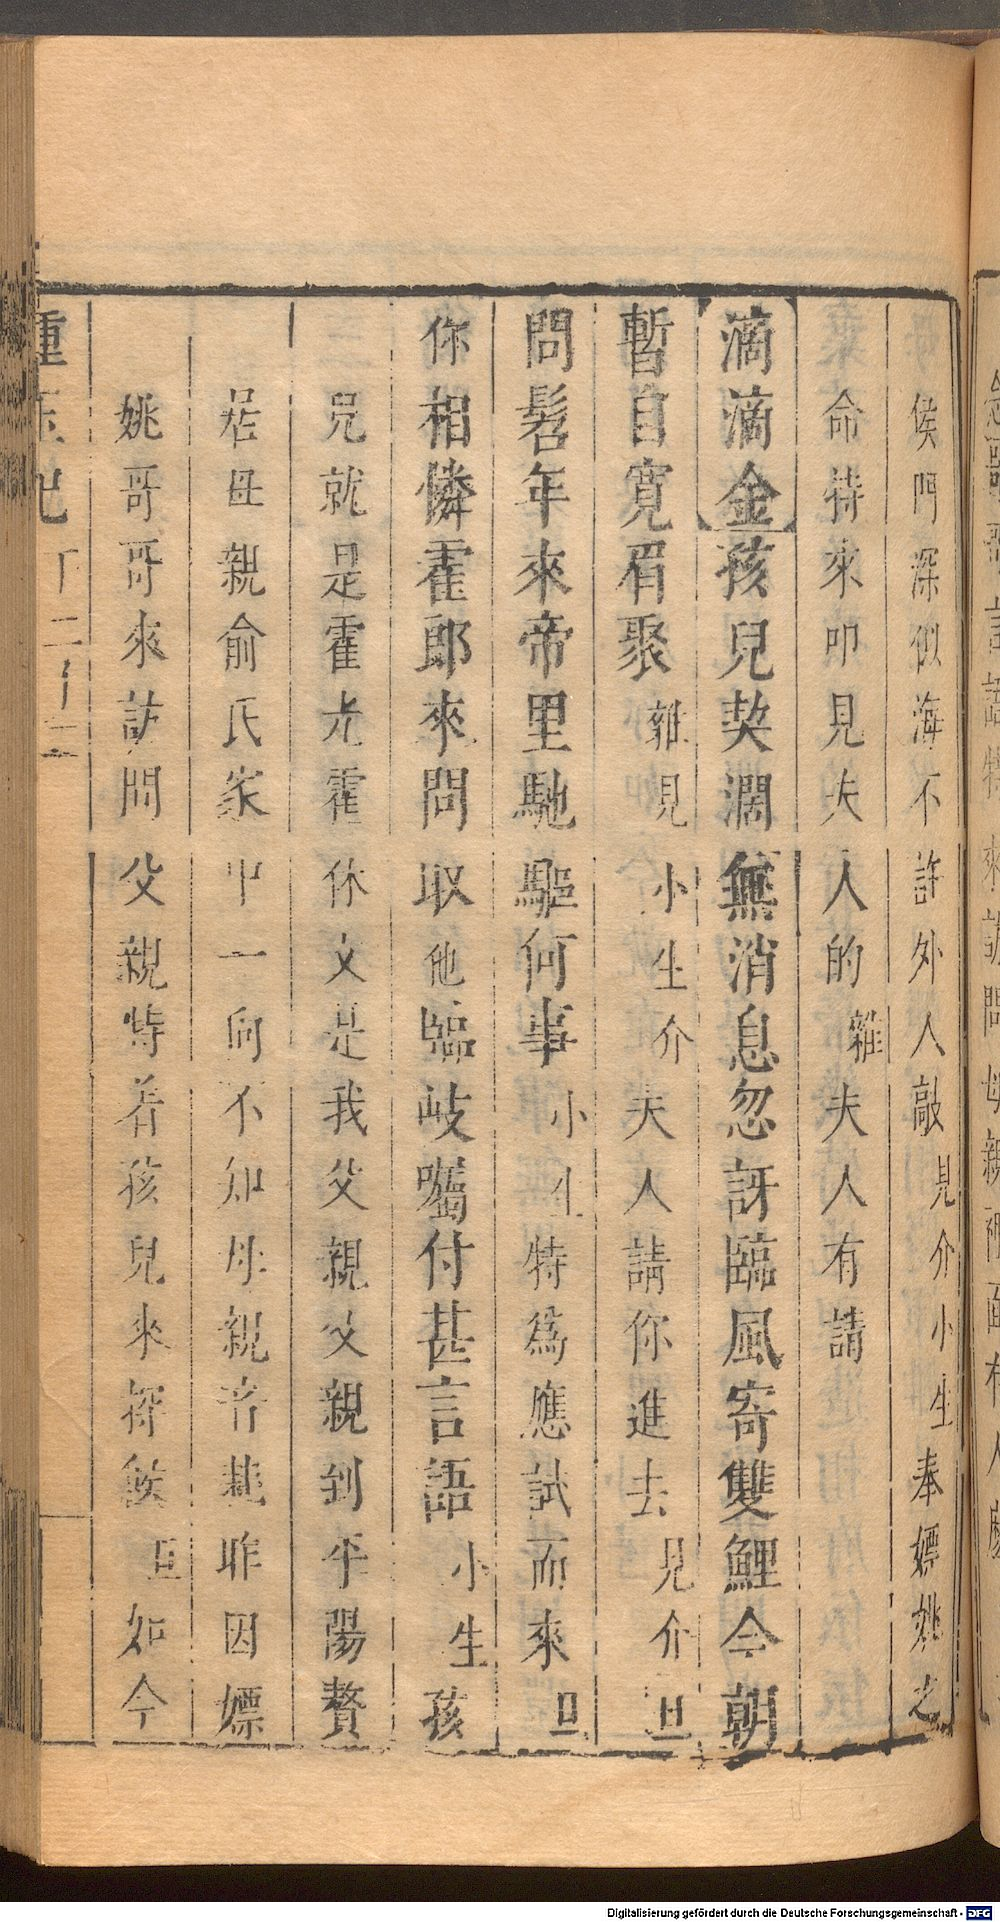 侯門深似海不許外人敲見介小生奉嫖姚之
命特來叩見夫人的雜夫人有請
滴滴金孩兒契濶無消息忽訝臨風寄雙鯉今朝
暫自寬眉聚雜見小生介夫人請你進去見介旦
問髫年來帝里馳驅何事小生特為應試而來旦
你相憐霍郎來問取他臨岐囑付甚言語小生孩
兒就是霍光霍休文是我父親父親到平陽贅
居母親俞氏家中一向不知母親音耗昨因嫖
姚哥哥來訪問父親特着孩兒來探候旦如今
Digitalisierung gefördert durch die Deutsche Forschungsgemeinschaft - DFG